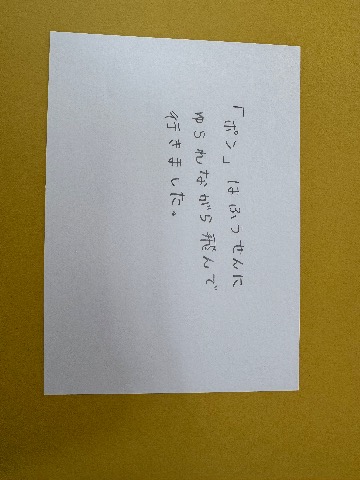 「ポン」はふうせんに
ゆられながら飛んで
行きました。